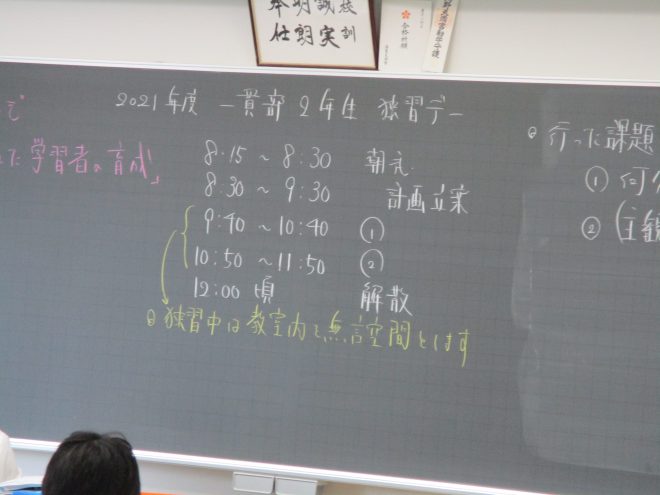 校訓
誠実
明朗
奉仕
合格祈願
2021年度 一貫部 2年生 独習デー
学習者の育成」
8:15 ~ 8:30 朝礼
8:30 ~ 9:30 計画立案
9:40 ~ 10:40 ①
10:50 ~ 11:50 ②
12:00 頃 解散
独習中は教室内を無言空間とします
行った課題
①
② (主観